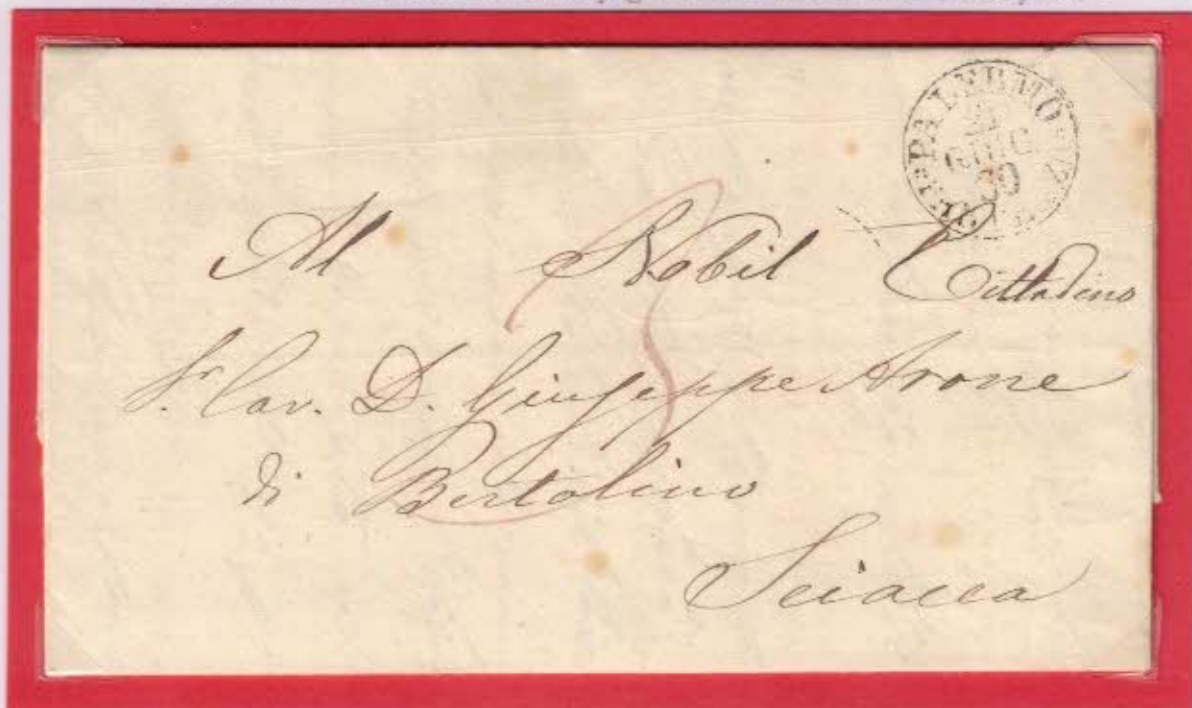 PALERMO
60
Al Nobil Cittadino
Sr. Cav. D. Giuseppe Arone
di Bertolino
Sciacca
3